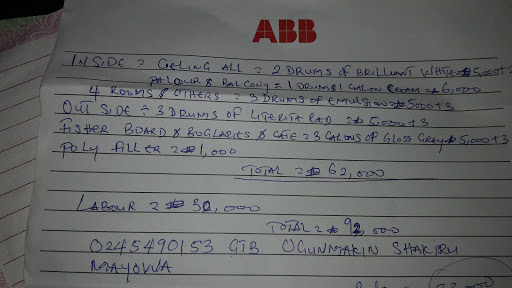 ABB
INSIDE = CIELING ALL = 2 DRUMS OF BRILLIANT WHITE ₦5,000+2
PALOUR & BALCONY = 1 DRUM & 1 GALON CREAM ₦6,000
4 ROOMS & OTHERS = 3 DRUMS OF EMULSION ₦5000+3
OUT SIDE = 3 DRUMS OF RED = ₦5,000+3
FISHER BOARD & BUGLARIES & GATE = 3 GALONS OF GLOSS GRAY ₦5,000+3
POLY FILLER = ₦1,000
TOTAL = ₦ 62,000
LABOUR = ₦ 30,000
TOTAL = ₦ 92,000
0245490153 GTB OGUNMAKIN SHAKIRU
MAYOWA
22,000